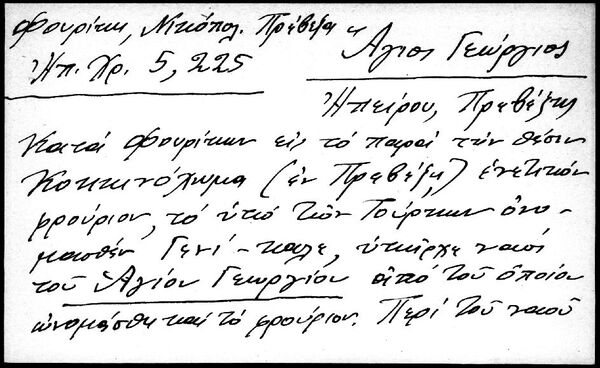 Φουρίκη, Νικόπολ. Πρέβεζα
Ἠπ. Χρ. 5, 225
Ἅγιος Γεώργιος
Ἠπείρου, Πρεβέζης
Κατά Φουρίκην εἰς τό παρά τήν θέσιν
Κοκκινόχωμα (ἐν Πρεβέζῃ) ἑνετικόν
φρούριον, τό ὑπό τῶν Τούρκων ὀνο-
μασθέν Γενί-καλε, ὑπῆρχε ναός
τοῦ Ἁγίου Γεωργίου ἀπό τοῦ ὁποίου
ὠνομάσθη καί τό φρούριον. Περί τοῦ ναοῦ